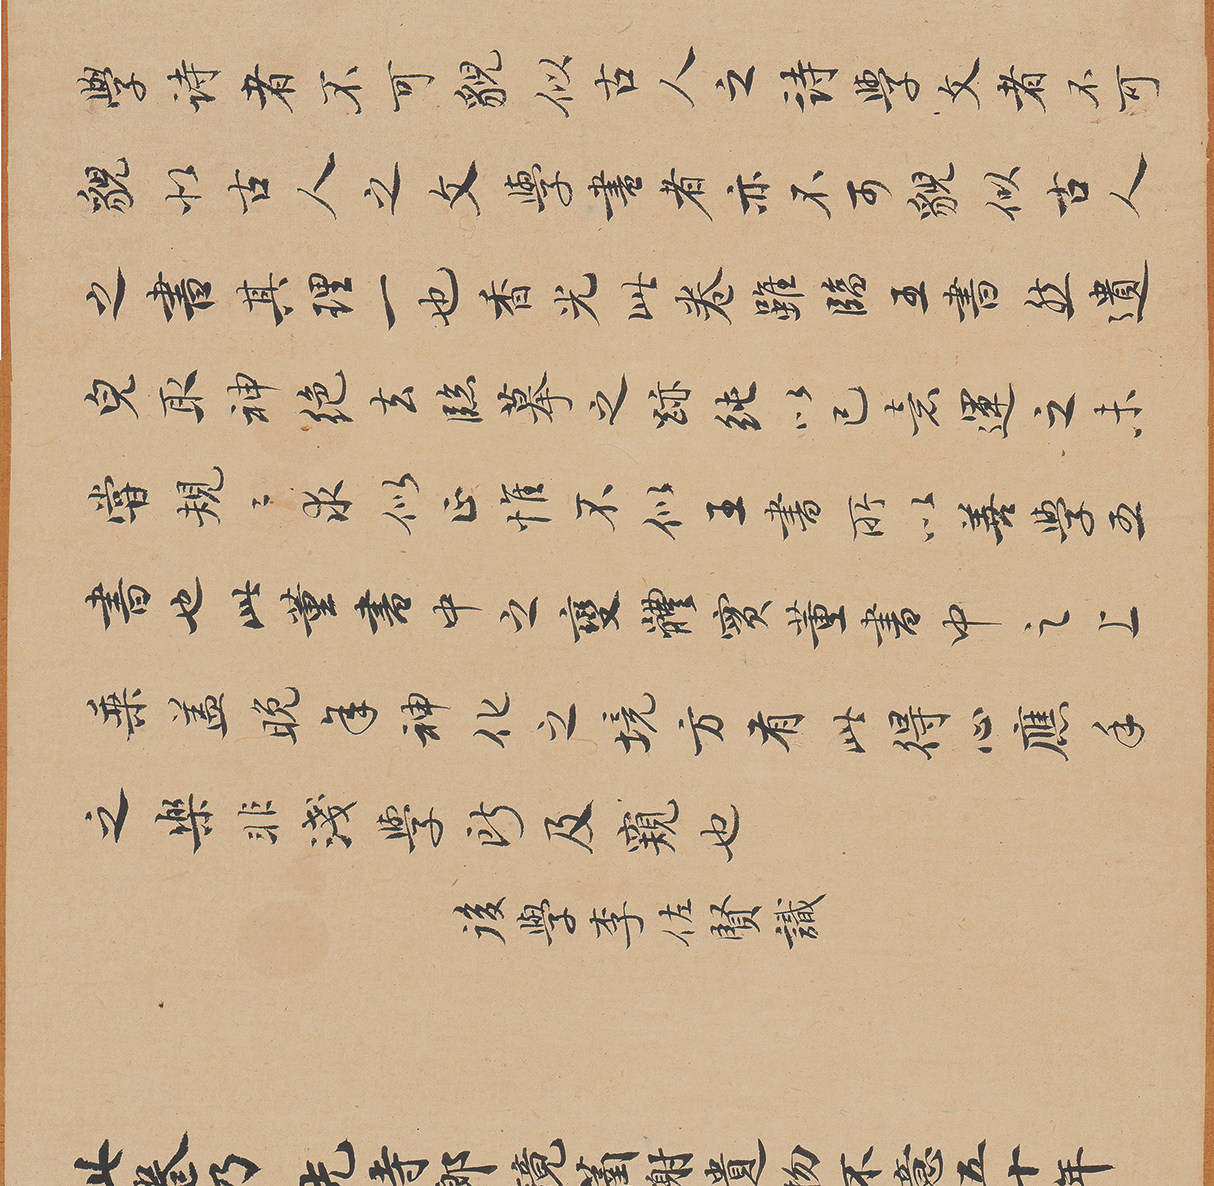 學詩者不可貌似古人之詩學文者不可
貌似古人之文學書者亦不可貌似古人
之書其理一也香光此卷雖臨王書然遺
皃取神絕去臨摹之跡純以己意運之未
當規〻求似正惟不似王書所以善學王
書也此董書中之變體實董書中之上
乘蓋晚年神化之境方有此得心應手
之樂非淺學所及窺也
後學李佐賢識
此卷乃 先寺卿鏡遺物不意五十年